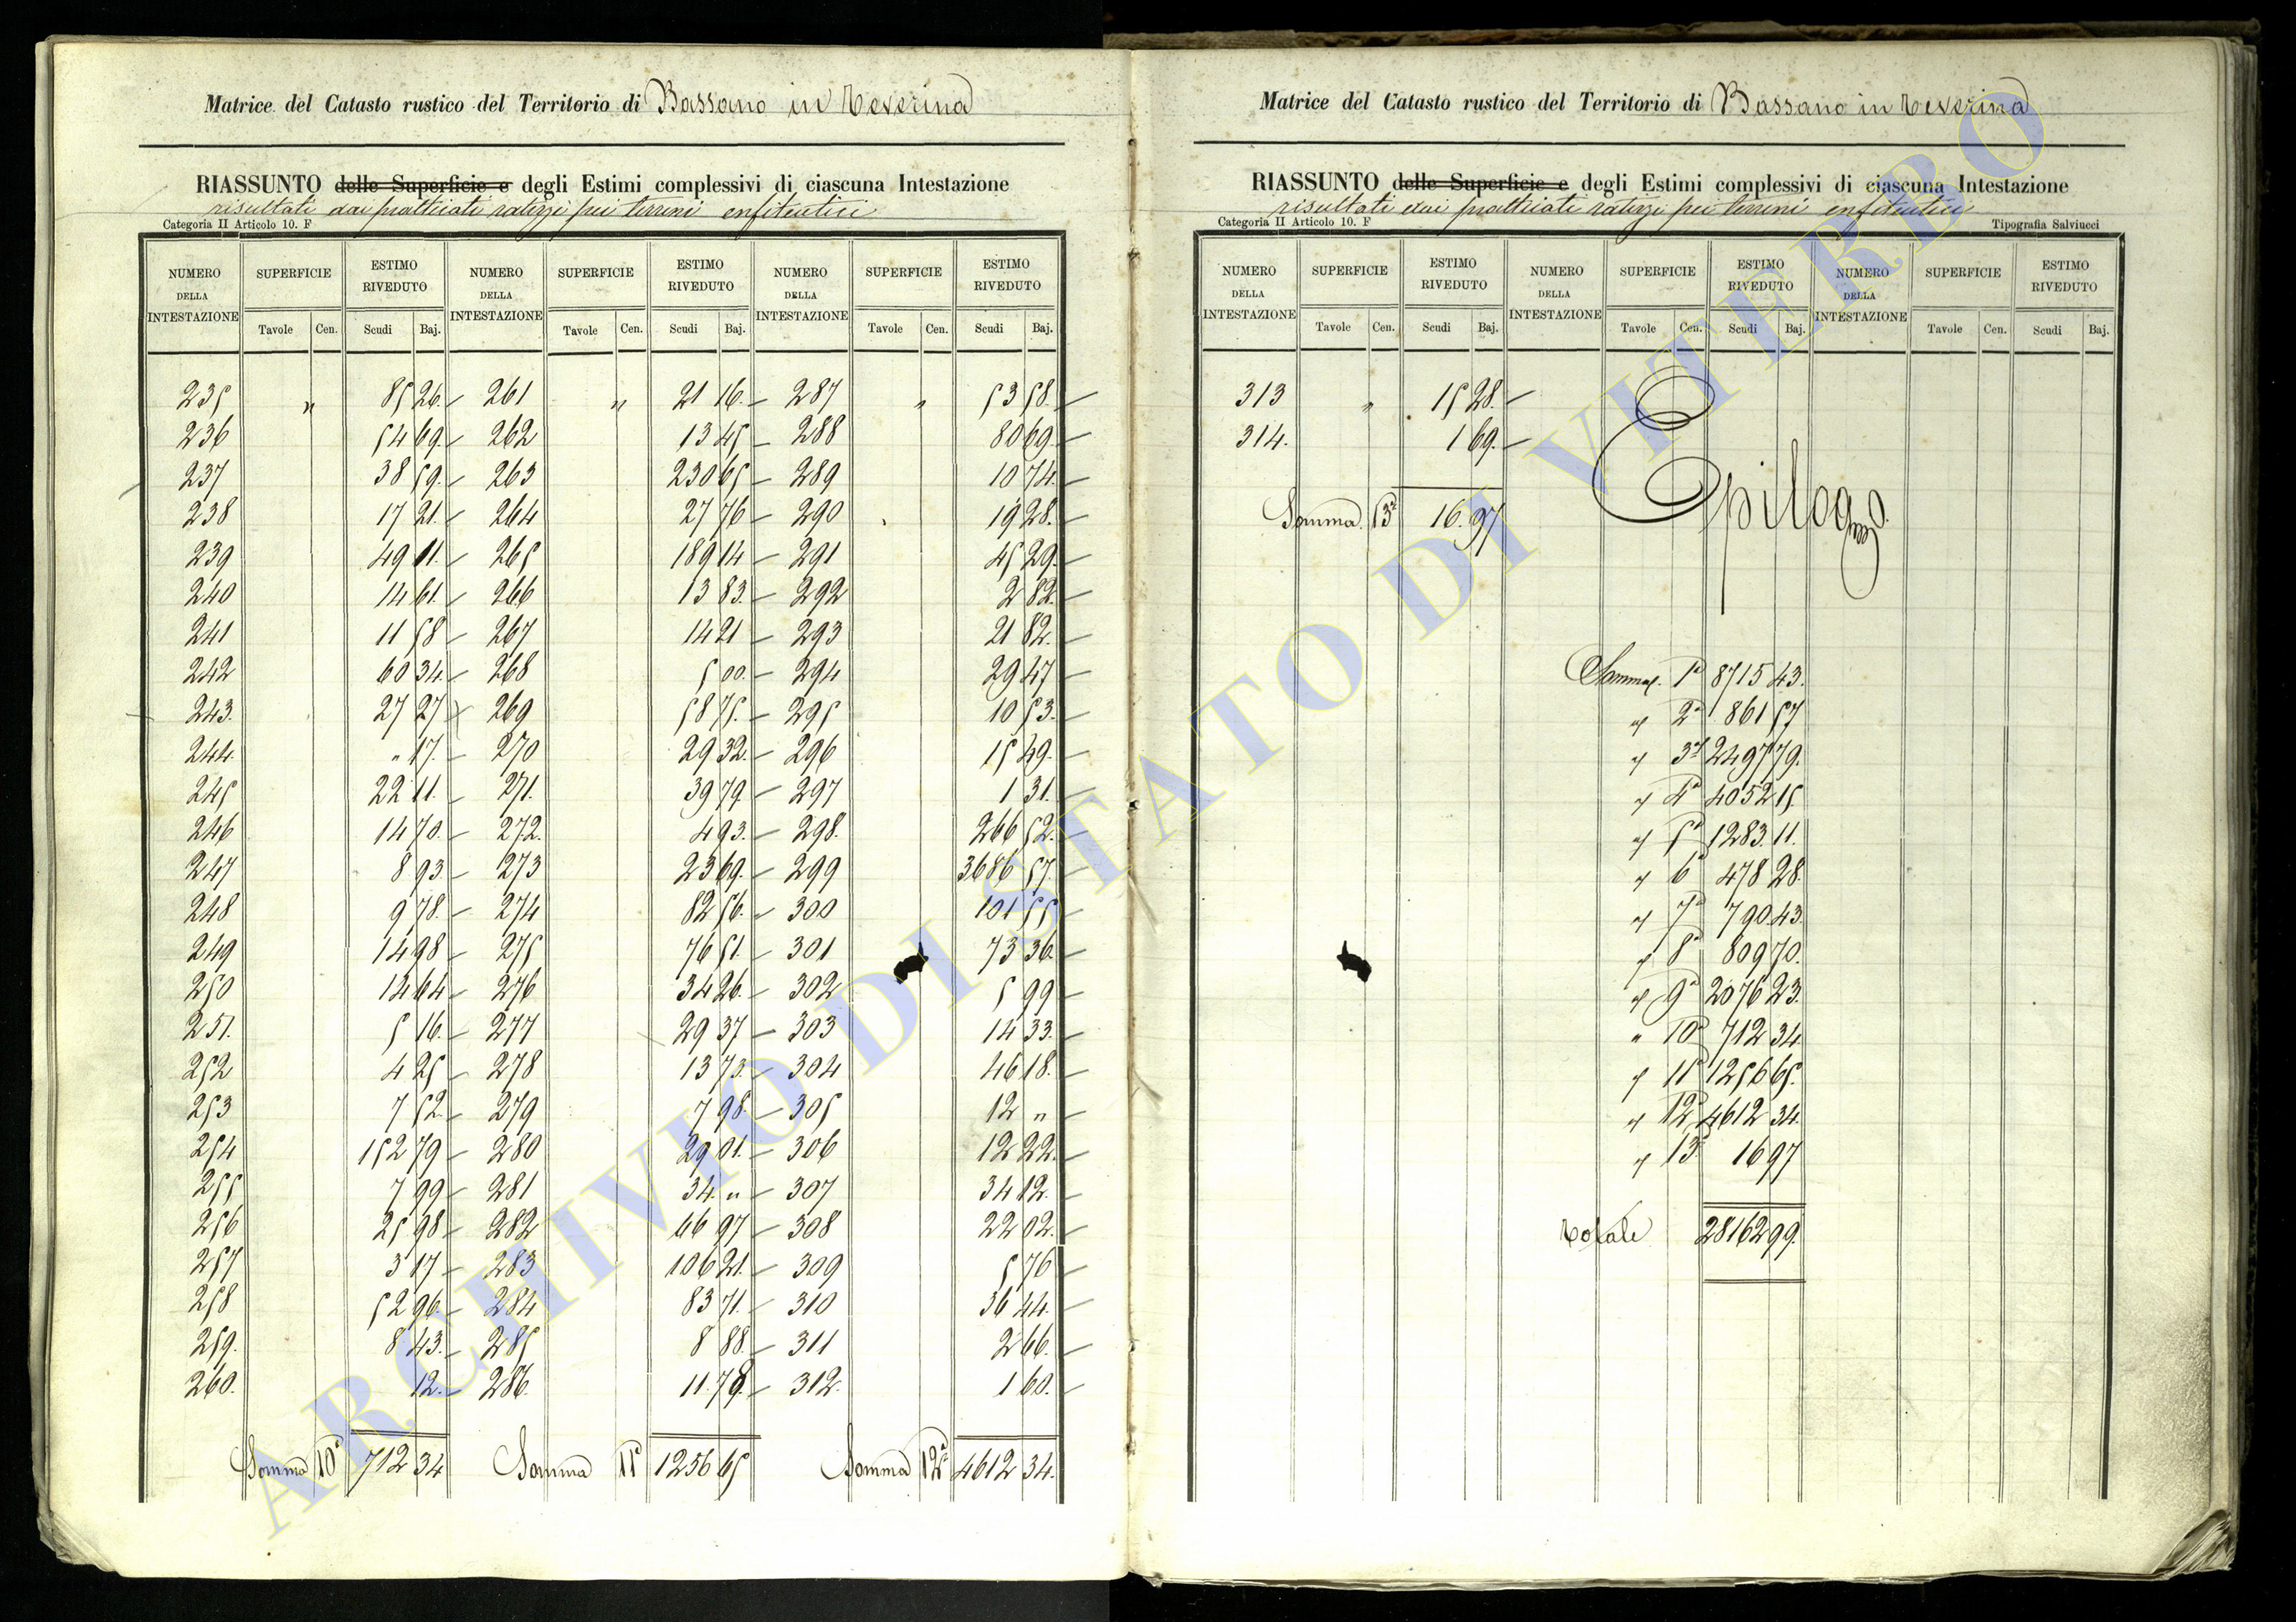 Matrice del Catasto rustico del Territorio di Bassano in Teverina
RIASSUNTO delle Superficie e degli Estimi complessivi di ciascuna Intestazione
risultati dai praticati ratizzi pei terreni enfiteutici
Categoria II Articolo 10. F
NUMERO DELLA INTESTAZIONE SUPERFICIE ESTIMO RIVEDUTO NUMERO DELLA INTESTAZIONE SUPERFICIE ESTIMO RIVEDUTO NUMERO DELLA INTESTAZIONE SUPERFICIE ESTIMO RIVEDUTO
Tavole Cen. Scudi Baj. Tavole Cen. Scudi Baj. Tavole Cen. Scudi Baj.
235 " 85 26. 261 " 21 16. 287 " 53 58.
236 54 69. 262 13 45 288 80 69.
237 38 59. 263 230 65 289 10 74.
238 17 21. 264 27 76 290 19 28.
239 49 11. 265 189 14 291 45 29.
240 14 61. 266 13 83. 292 2 82.
241 11 58 267 14 21 293 21 82.
242 60 34. 268 5 00. 294 29 47
243. 27 27 269 58 75. 295 10 53.
244. " 17. 270 29 32. 296 15 49.
245 22 11. 271. 39 79. 297 1 31.
246 14 70. 272. 4 93. 298. 266 52.
247 8 93 273 23 69. 299 3686 57.
248 9 78. 274 82 56. 300 101 55
249 14 98 275 76 51. 301 73 36.
250 14 64 276 34 26. 302 5 99
251. 5 16. 277 29 37 303 14 33.
252 4 25 278 13 73. 304 46 18.
253 7 52. 279 7 98. 305 12 "
254 152 79 280 29 01. 306 12 22.
255 7 99 281 34. " 307 34 12.
256 25 98 282 46 97 308 22 02.
257 3 17 283 106 21. 309 5 76
258 52 96. 284 83 71. 310 36 44.
259. 8 43. 285 8 88. 311 2 66.
260. 12. 286. 11. 78. 312. 1 60.
Somma 10ª 712 34 Somma 11ª 1256 65 Somma 12ª 4612 34.
Matrice del Catasto rustico del Territorio di Bassano in Teverina
RIASSUNTO delle Superficie e degli Estimi complessivi di ciascuna Intestazione
risultati dai praticati ratizzi pei terreni enfiteutici
Categoria II Articolo 10. F Tipografia Salviucci
NUMERO DELLA INTESTAZIONE SUPERFICIE ESTIMO RIVEDUTO NUMERO DELLA INTESTAZIONE SUPERFICIE ESTIMO RIVEDUTO NUMERO DELLA INTESTAZIONE SUPERFICIE ESTIMO RIVEDUTO
Tavole Cen. Scudi Baj. Tavole Cen. Scudi Baj. Tavole Cen. Scudi Baj.
313 " 15 28.
314. 1 69.
Somma 13ª 16. 97
Epilogo.
Somma. 1ª 8715 43.
" 2ª 861 57
" 3ª 2497 79.
" 4ª 4052 15
" 5ª 1283. 11.
" 6ª 478 28.
" 7ª 790. 43.
" 8ª 809 70.
" 9ª 2076 23.
" 10ª 712 34.
" 11ª 1256 65.
" 12ª 4612 34.
" 13ª 16 97
Totale 28162 99.
ARCHIVIO DI STATO DI VITERBO